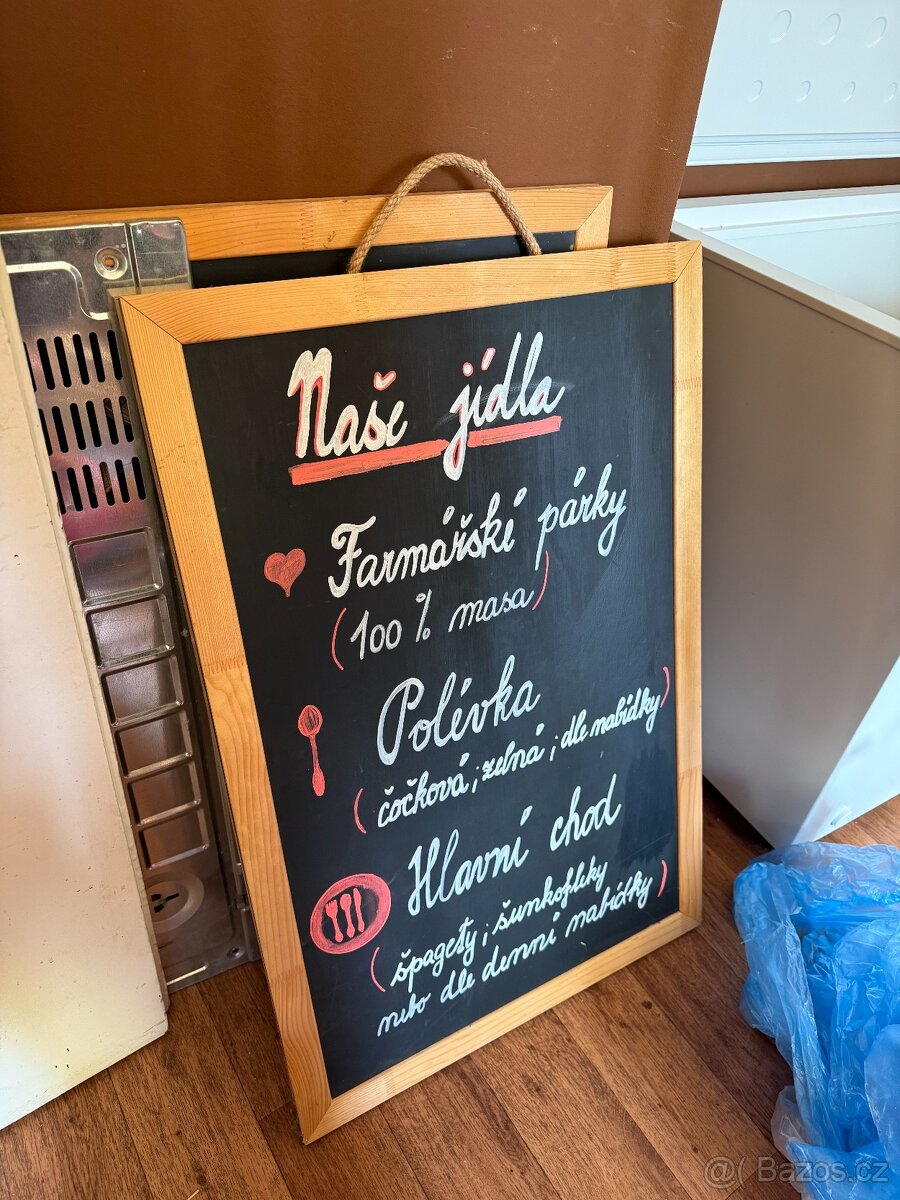 Naše jídla
Farmářské párky
(100% masa)
Polévka
(čočková; zelná; dle nabídky)
Hlavní chod
(špagety; šunkofleky
nebo dle denní nabídky)
@( Bazos.cz